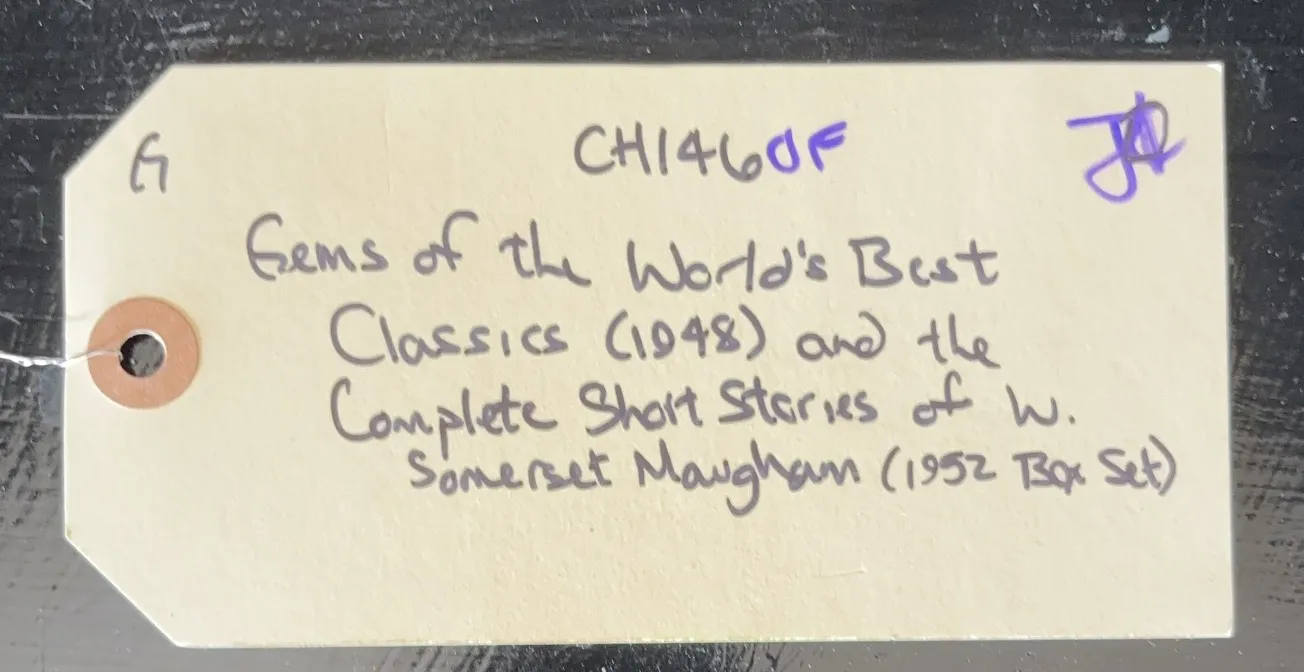 G
CH1460F
Gems of the World's Best
Classics (1948) and the
Complete Short Stories of W.
Somerset Maugham (1952 Box Set)